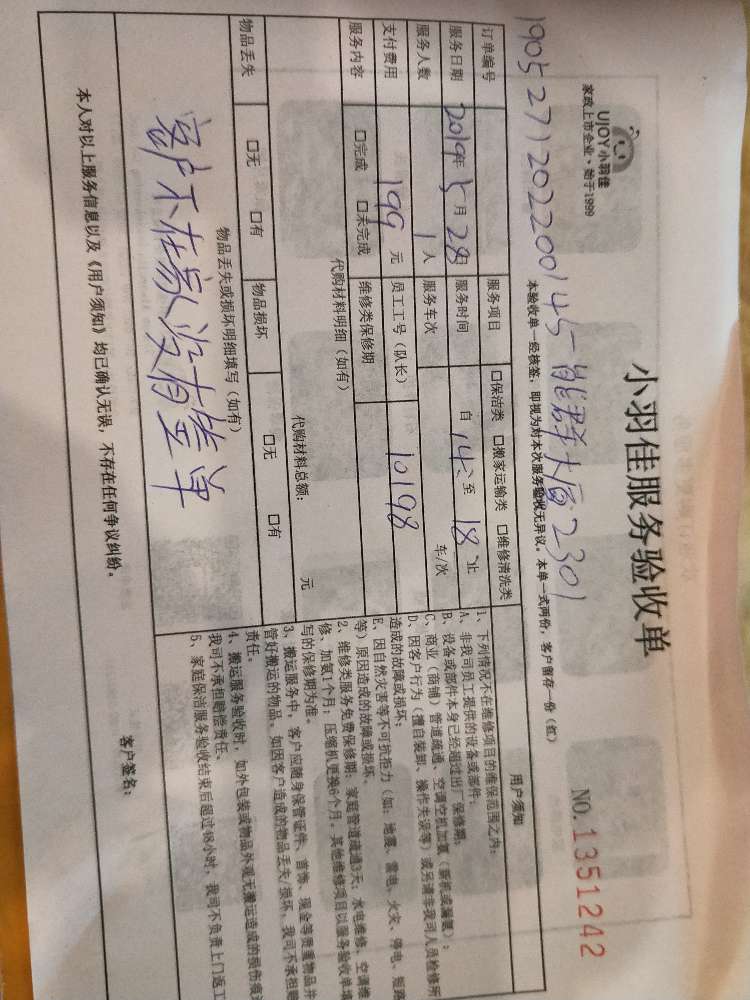 UJOY小羽佳
家政上市企业·始于1999
小羽佳服务验收单
NO.1351242
1905271202200145 能群大厦2301
本验收单一经核签，即视为对本次服务验收无异议。本单一式两份，客户留存一份（红）
订单编号
服务项目 □保洁类 □搬家运输类 □维修清洗类
服务日期 2019年5月28日 服务时间 自14:至18:止
服务人数 1人 服务车次 车/次
支付费用 199元 员工工号（队长） 10198
服务内容 □完成 □未完成 维修类保修期
代购材料明细（如有）
代购材料总额： 元
物品丢失 □无 □有 物品损坏 □无 □有
物品丢失或损坏明细填写（如有）
客户不在家没有签单
用户须知
1、下列情况不在维修项目的维保范围之内：
A、非我司员工提供的设备或部件；
B、设备或部件本身已经超过出厂保修期；
C、商业（商铺）管道疏通、空调空机加氨（新机或漏氨）；
D、因客户行为（擅自装卸、操作失误等）或另请非我司人员检修所
造成的故障或损坏；
E、因自然灾害等不可抗拒力（如：地震、雷电、火灾、停电、短路
等）原因造成的故障或损坏。
2、维修类服务免费保修期：家庭管道疏通3天；水电维修、空调维
修、加氨1个月；压缩机更换6个月，其他维修项目以服务验收单填
写的保修期为准。
3、搬运服务中，客户应随身保管证件、首饰、现金等贵重物品并
管好搬运的物品，如因客户造成的物品丢失/损坏，我司不承担赔
责任。
4、搬运服务验收时，如外包装或物品外观无搬运造成的损伤痕迹
我司不承担赔偿责任。
5、家庭保洁服务验收结束后超过48小时，我司不负责上门返工
本人对以上服务信息以及《用户须知》均已确认无误，不存在任何争议纠纷。
客户签名：